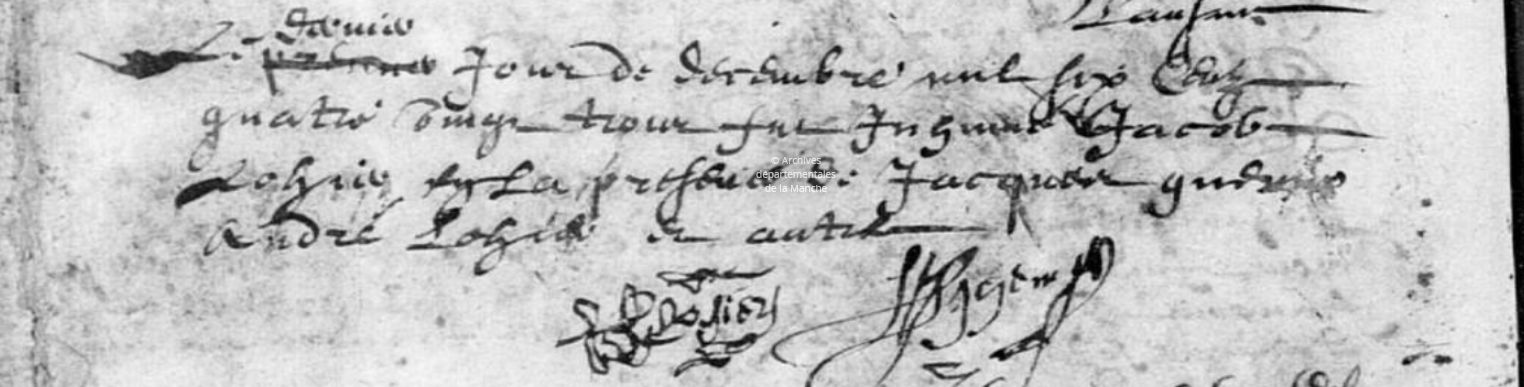 dernier
Le jour de decembre mil six Centz
quatre vingt trois fut Inhumé Jacob
Lohier en La presence de Jacques
André Lohier et autres
© Archives
départementales
de la Manche